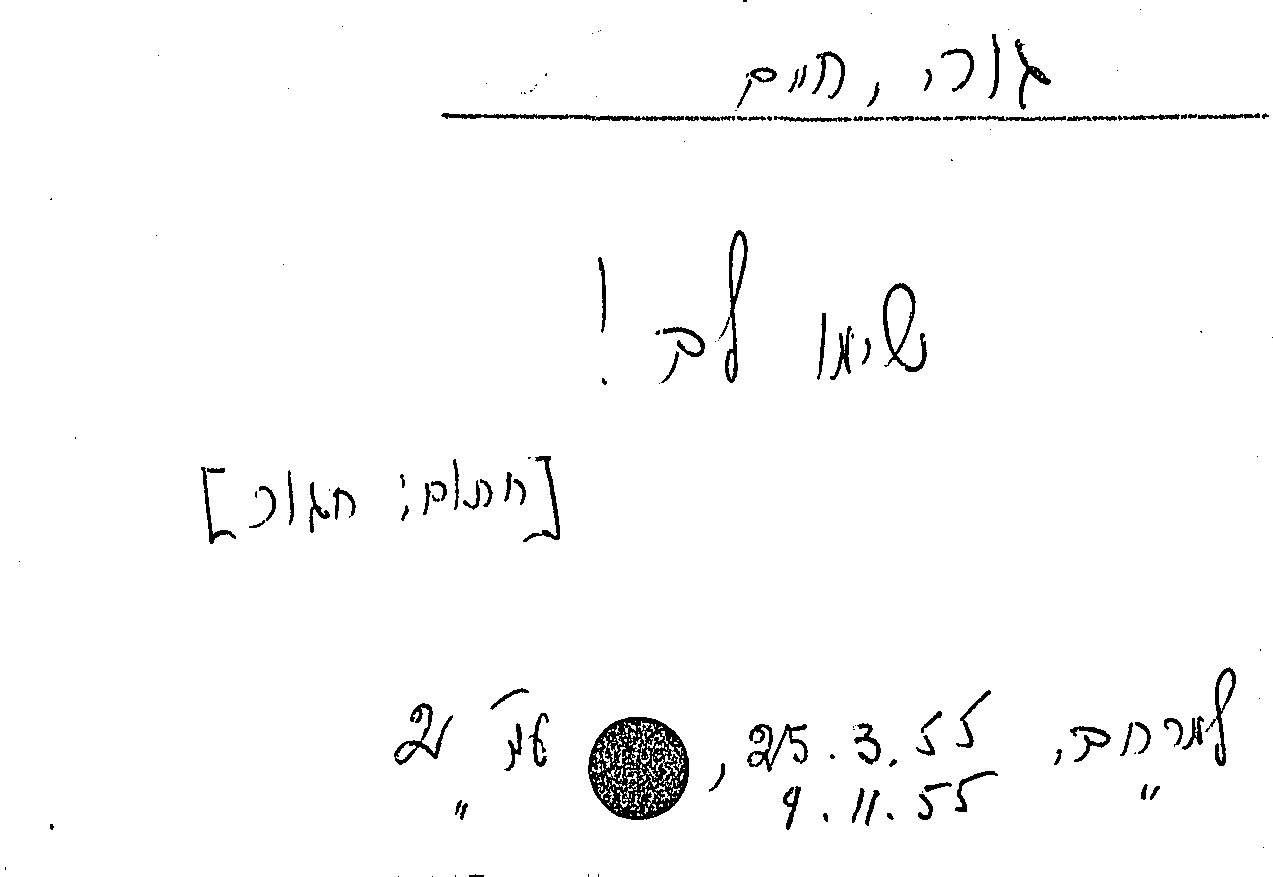 גורי, חיים
שימו לב!
[חתום: חגור]
למרחב, 25.3.55, עמ' 2
" 9.11.55 "